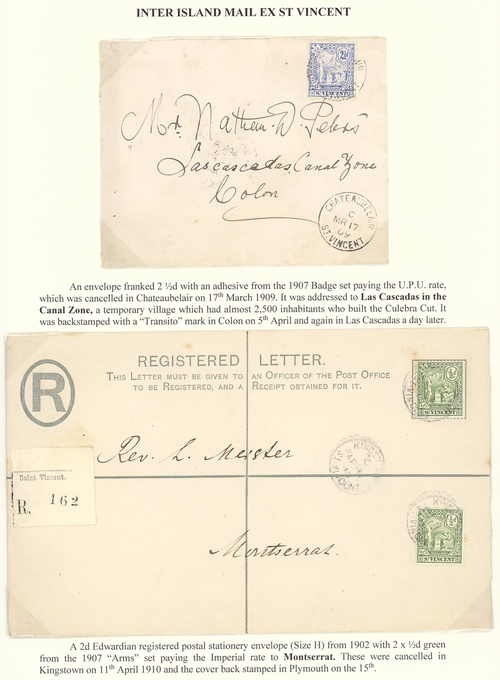 INTER ISLAND MAIL EX ST VINCENT
2½
ST VINCENT
Mrs Nathan W. Peters
Lascascadas, Canal Zone
Colon
CHATEAUBELAIR
C
MR 17
09
ST. VINCENT
An envelope franked 2 ½d with an adhesive from the 1907 Badge set paying the U.P.U. rate,
which was cancelled in Chateaubelair on 17th March 1909. It was addressed to Las Cascadas in the
Canal Zone, a temporary village which had almost 2,500 inhabitants who built the Culebra Cut. It
was backstamped with a “Transito” mark in Colon on 5th April and again in Las Cascadas a day later.
R
REGISTERED LETTER.
THIS LETTER MUST BE GIVEN TO AN OFFICER OF THE POST OFFICE
TO BE REGISTERED, AND A RECEIPT OBTAINED FOR IT.
½d
ST VINCENT
Rev. L. Meister
Saint Vincent.
R. 162
½d
ST VINCENT
Montserrat.
A 2d Edwardian registered postal stationery envelope (Size H) from 1902 with 2 x ½d green
from the 1907 “Arms” set paying the Imperial rate to Montserrat. These were cancelled in
Kingstown on 11th April 1910 and the cover back stamped in Plymouth on the 15th.